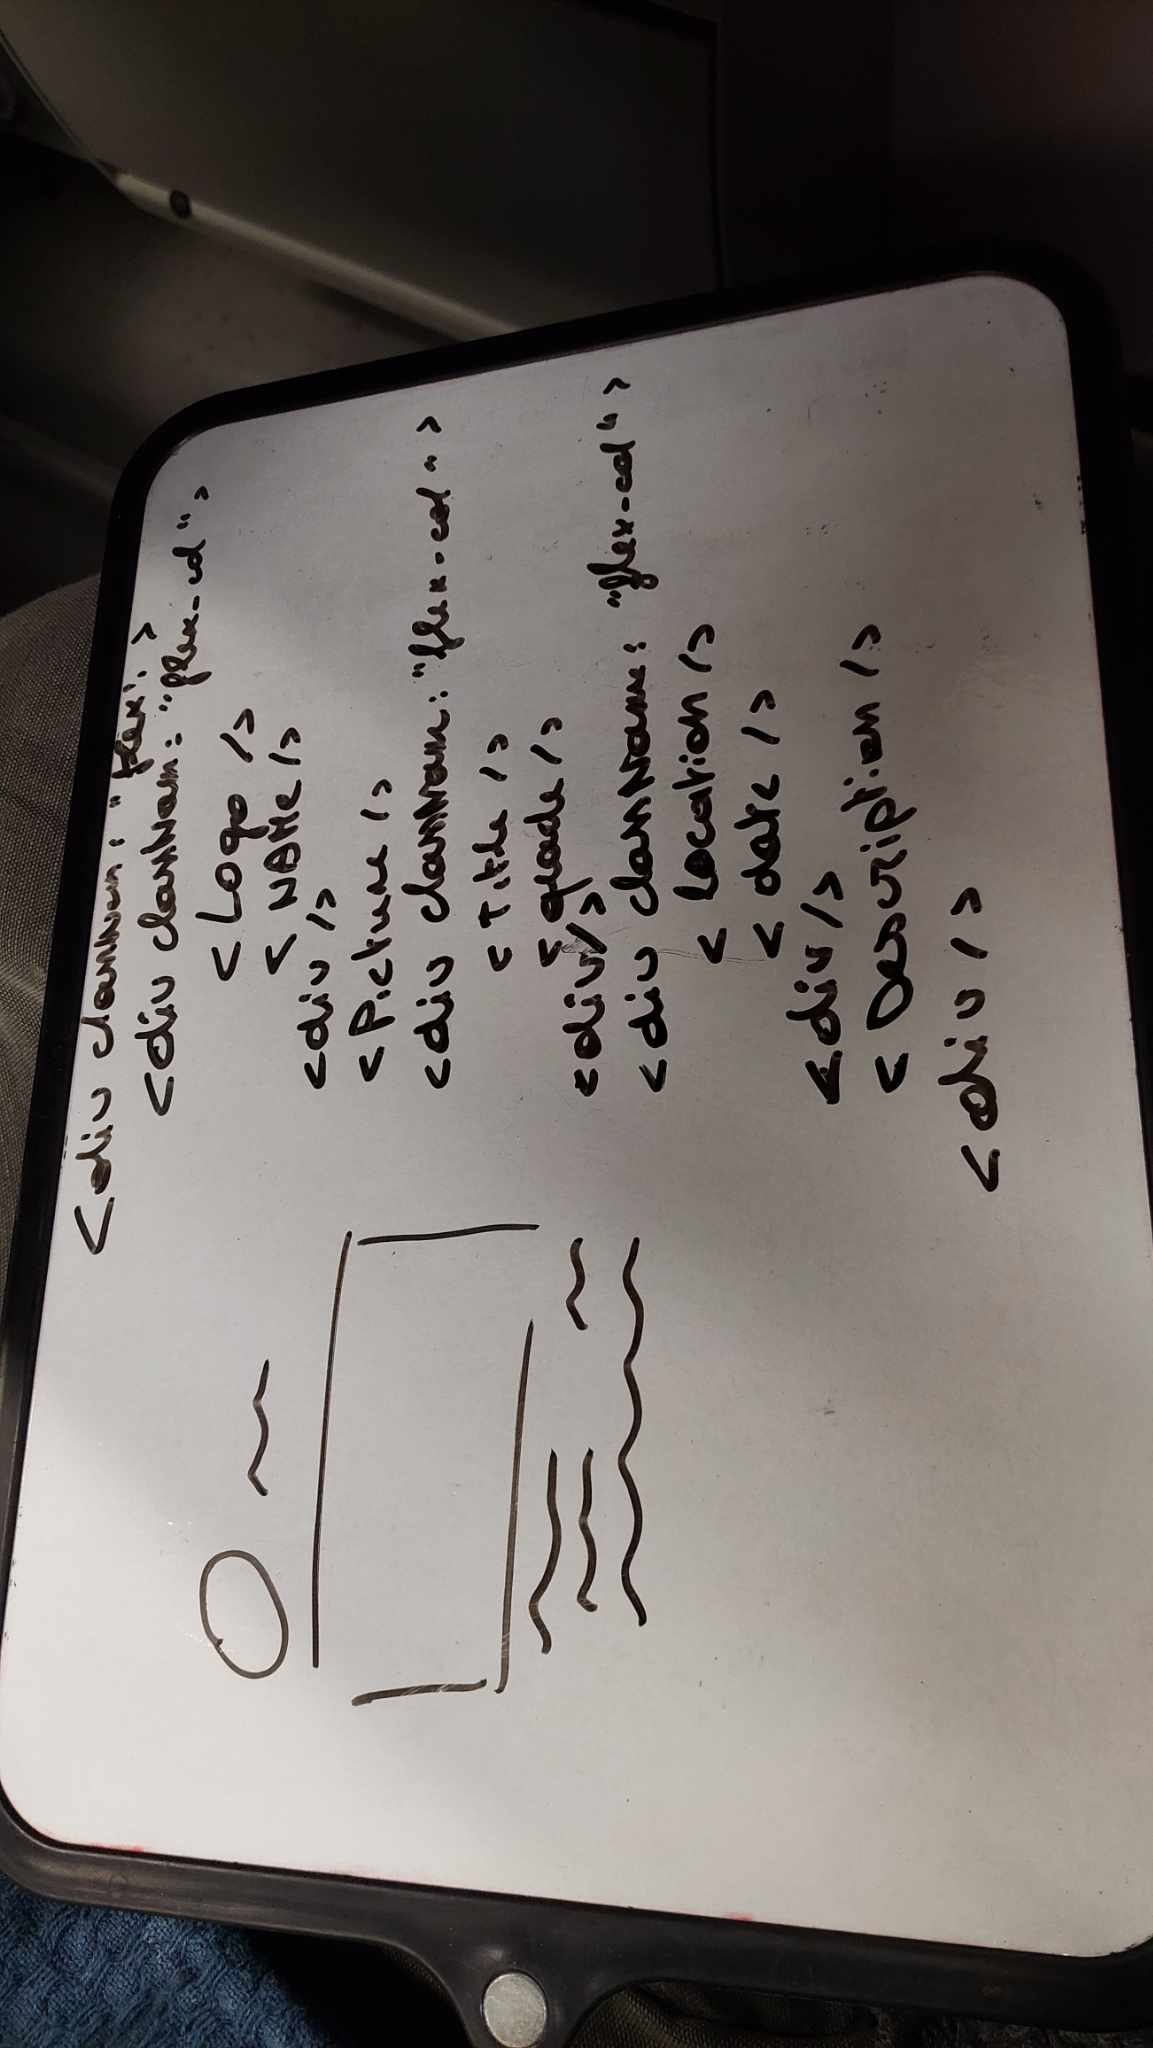 <div className: "flex">
<div className: "flex-col">
<Logo />
<NAMe />
<div />
<Picture />
<div className: "flex-col">
<Title />
<grade />
<div />
<div className: "flex-col">
<Location />
<date />
<div />
<Description />
<div />